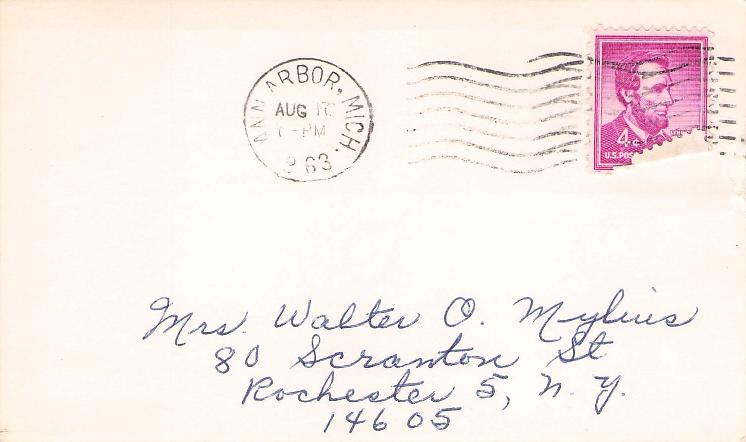 ANN ARBOR, MICH.
AUG
PM
1963
4¢
U.S. POS
Mrs. Walter O. Mylius
80 Scranton St
Rochester 5, N.Y.
14605